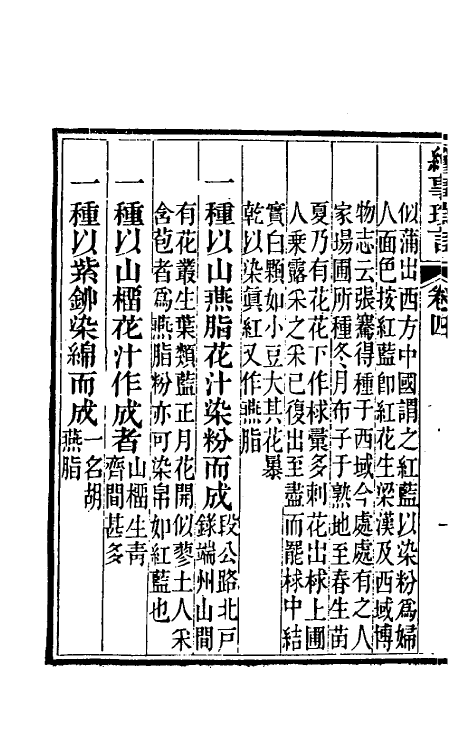 卷四
似蒲出西方中國謂之紅藍以染粉爲婦
人面色按紅藍卽紅花生梁漢及西域博
物志云張騫得種于西域今處處有之人
家場圃所種冬月布子于熟地至春生苗
夏乃有花花下作梂彙多刺花出梂上圃
人乘露采之采已復出至盡而罷梂中結
實白顆如小豆大其花暴
乾以染眞紅又作燕脂
一種以山燕脂花汁染粉而成段公路北戸
錄端州山間
有花叢生葉類藍正月花開似蓼土人采
含苞者爲燕脂粉亦可染帛如紅藍也
一種以山榴花汁作成者山榴生靑
齊間甚多
一種以紫鉚染綿而成一名胡
燕脂